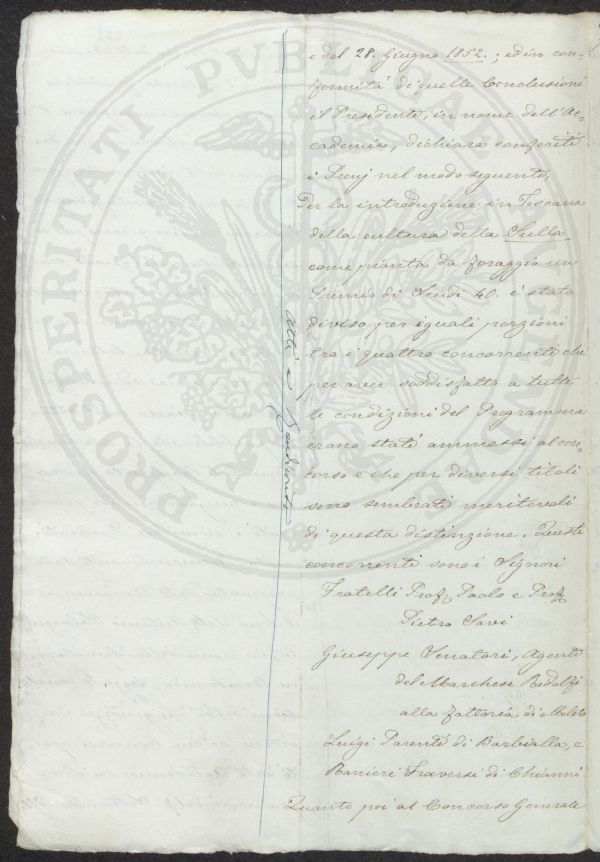 e del 28. Giugno 1852.; ed in con=
formità di quelle Conclusioni
il Presidente, in nome dell'Ac=
cademia, dichiara conferiti
i Premj nel modo seguente,
Per la introduzione in Toscana
della cultura della Sulla
come pianta da foraggio un
Premio di Scudi 40. è stato
diviso per iguali porzioni
tra i quattro concorrenti che
per aver soddisfatto a tutte
le condizioni del Programma
erano stati ammessi al con=
corso e che per diversi titoli
sono sembrati meritevoli
di questa distinzione. Questi
concorrenti sono i Signori
Fratelli Prof. Paolo e Prof.
Pietro Savi
Giuseppe Venatori, Agente
del Marchese Ridolfi
alla fattoria di Meleto
Luigi Parenti di Barbialla, e
Ranieri Traversi di Chianni
Quanto poi al Concorso Generale
Atti e Rendiconti
PROSPERITATI PUBLICAE AUGENDAE